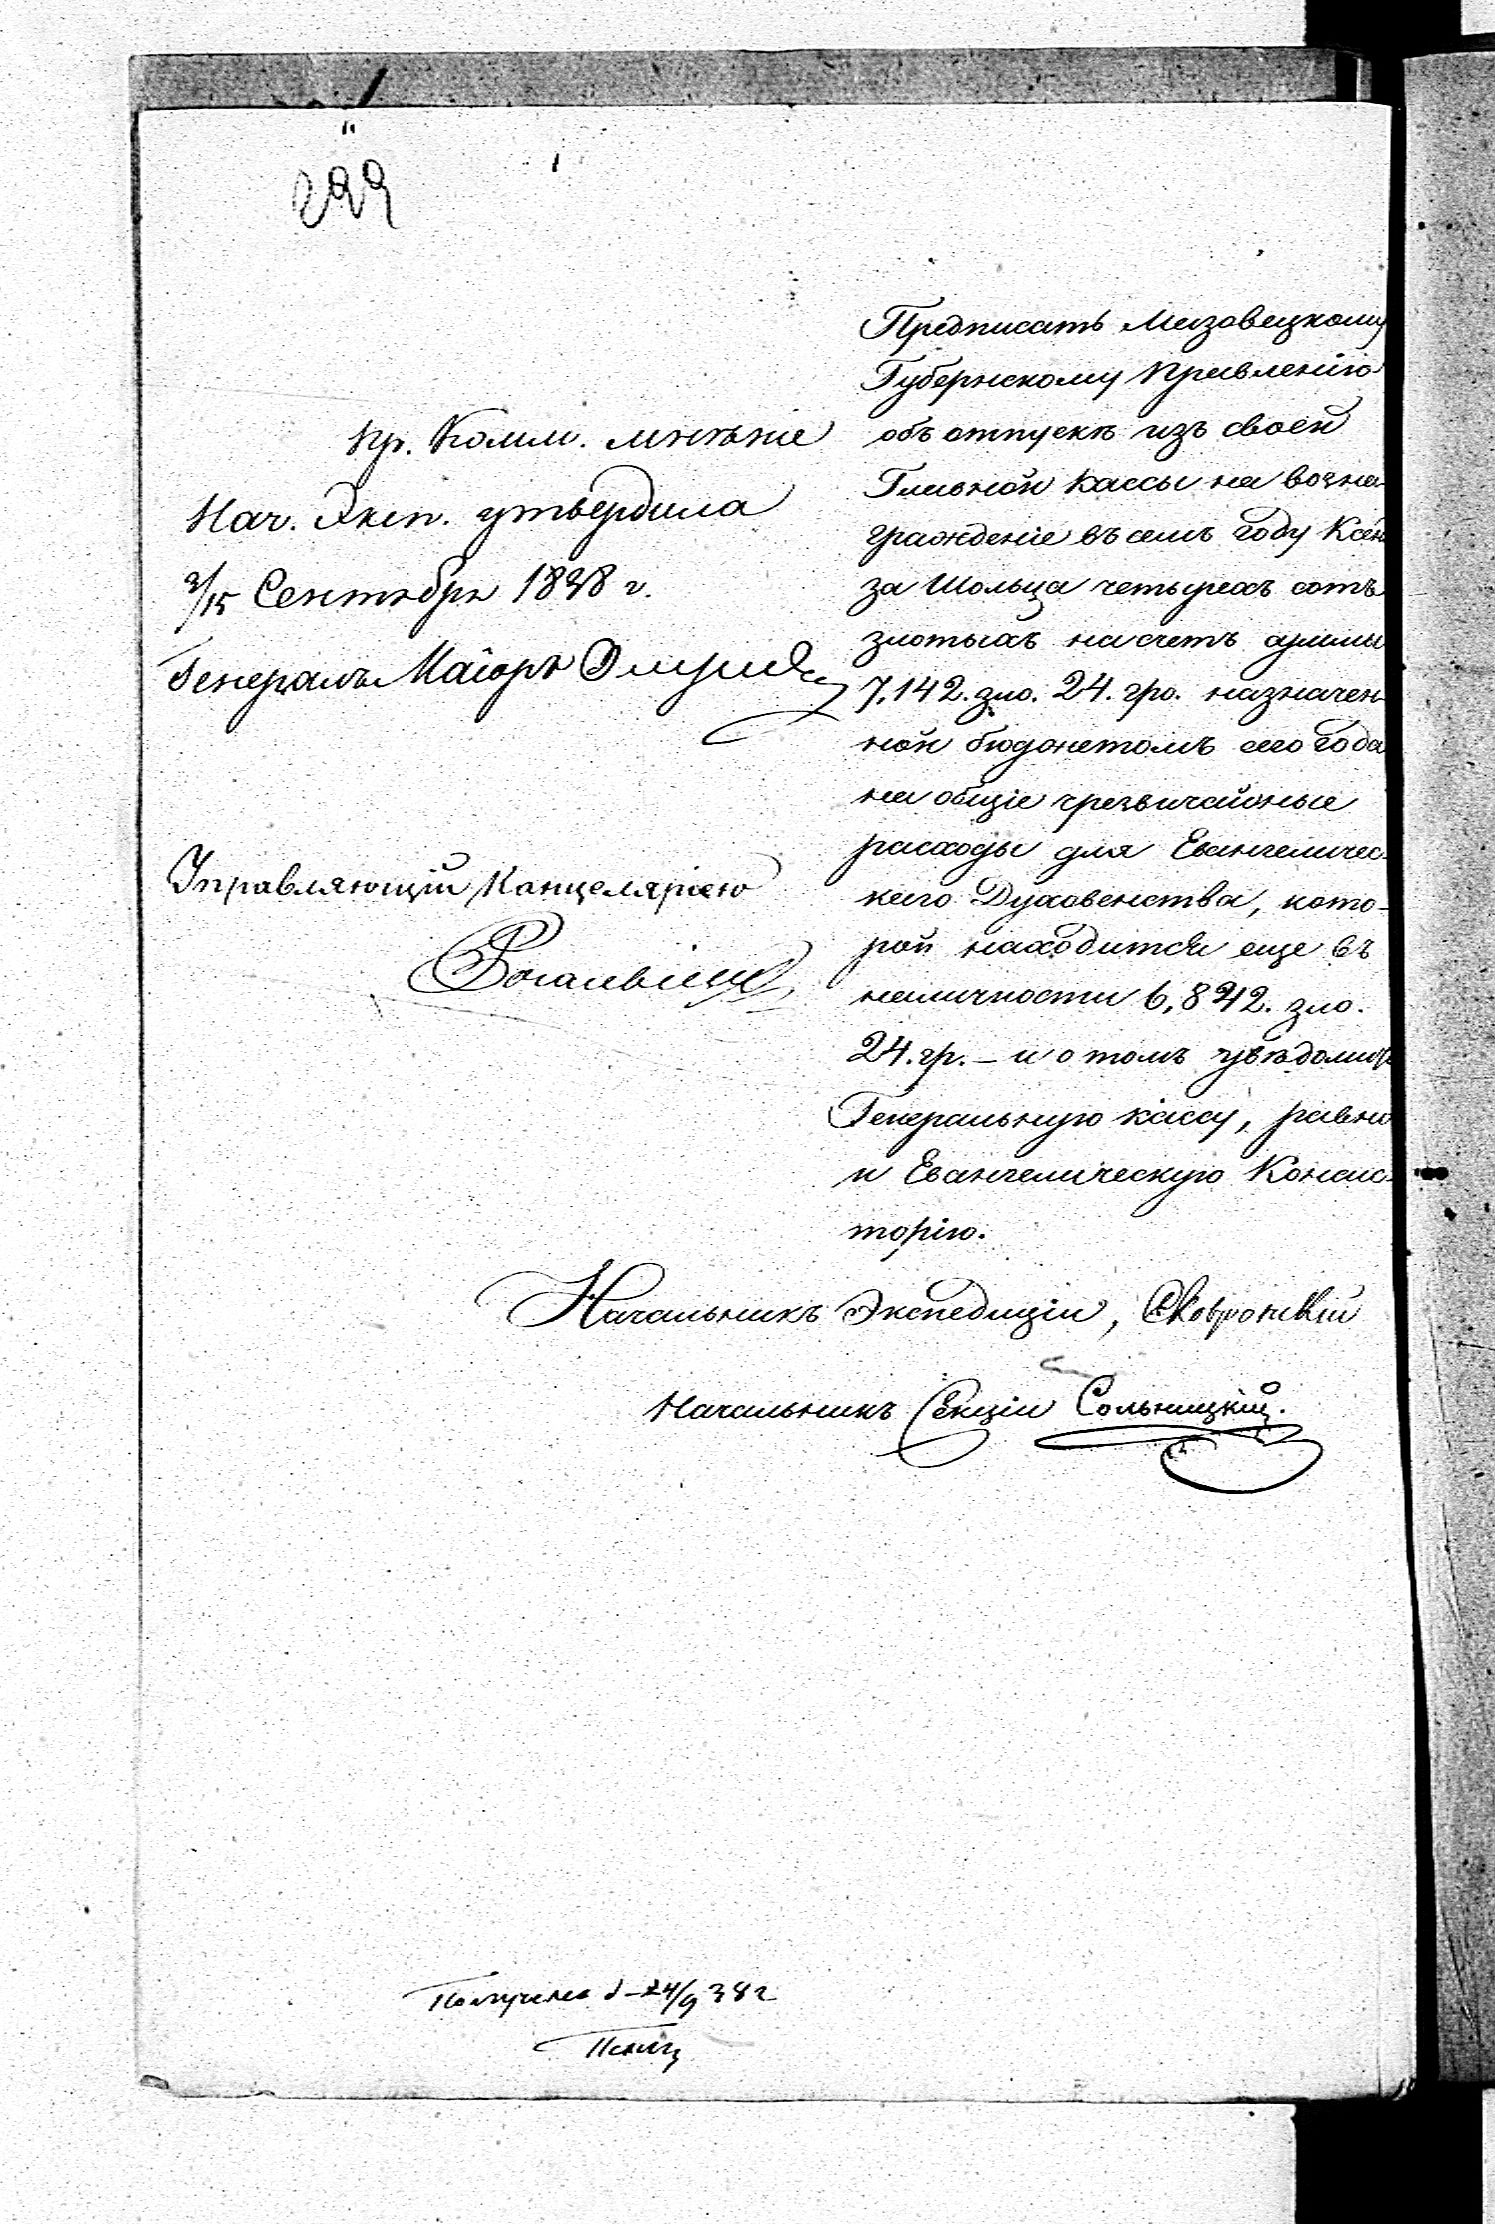 299
Пр. Комм. мнѣніе
Нач. Эксп. утвердила
3/15 Сентября 1838 г.
Генералъ Маіоръ
Управляющій Канцеляріею
Предписать Мазовецкому
Губернскому Правленію
объ отпускѣ изъ своей
Главной кассы на возна-
гражденіе въ семъ году Ксен
за Шольца четырехъ сотъ
злотыхъ на счетъ суммы
7,142. зло. 24. гро. назначен-
ной бюджетомъ сего года
на общіе чрезвычайные
расходы для Евангеличес-
каго Духовенства, кото-
рой находится еще въ
наличности 6,842. зло.
24. гр. – и о томъ увѣдомить
Генеральную кассу, равно
и Евангелическую Консис-
торію.
Начальникъ Экспедиціи, Скавронскій
Начальникъ Секціи Сольницкій.
Получено 24/9 38 г